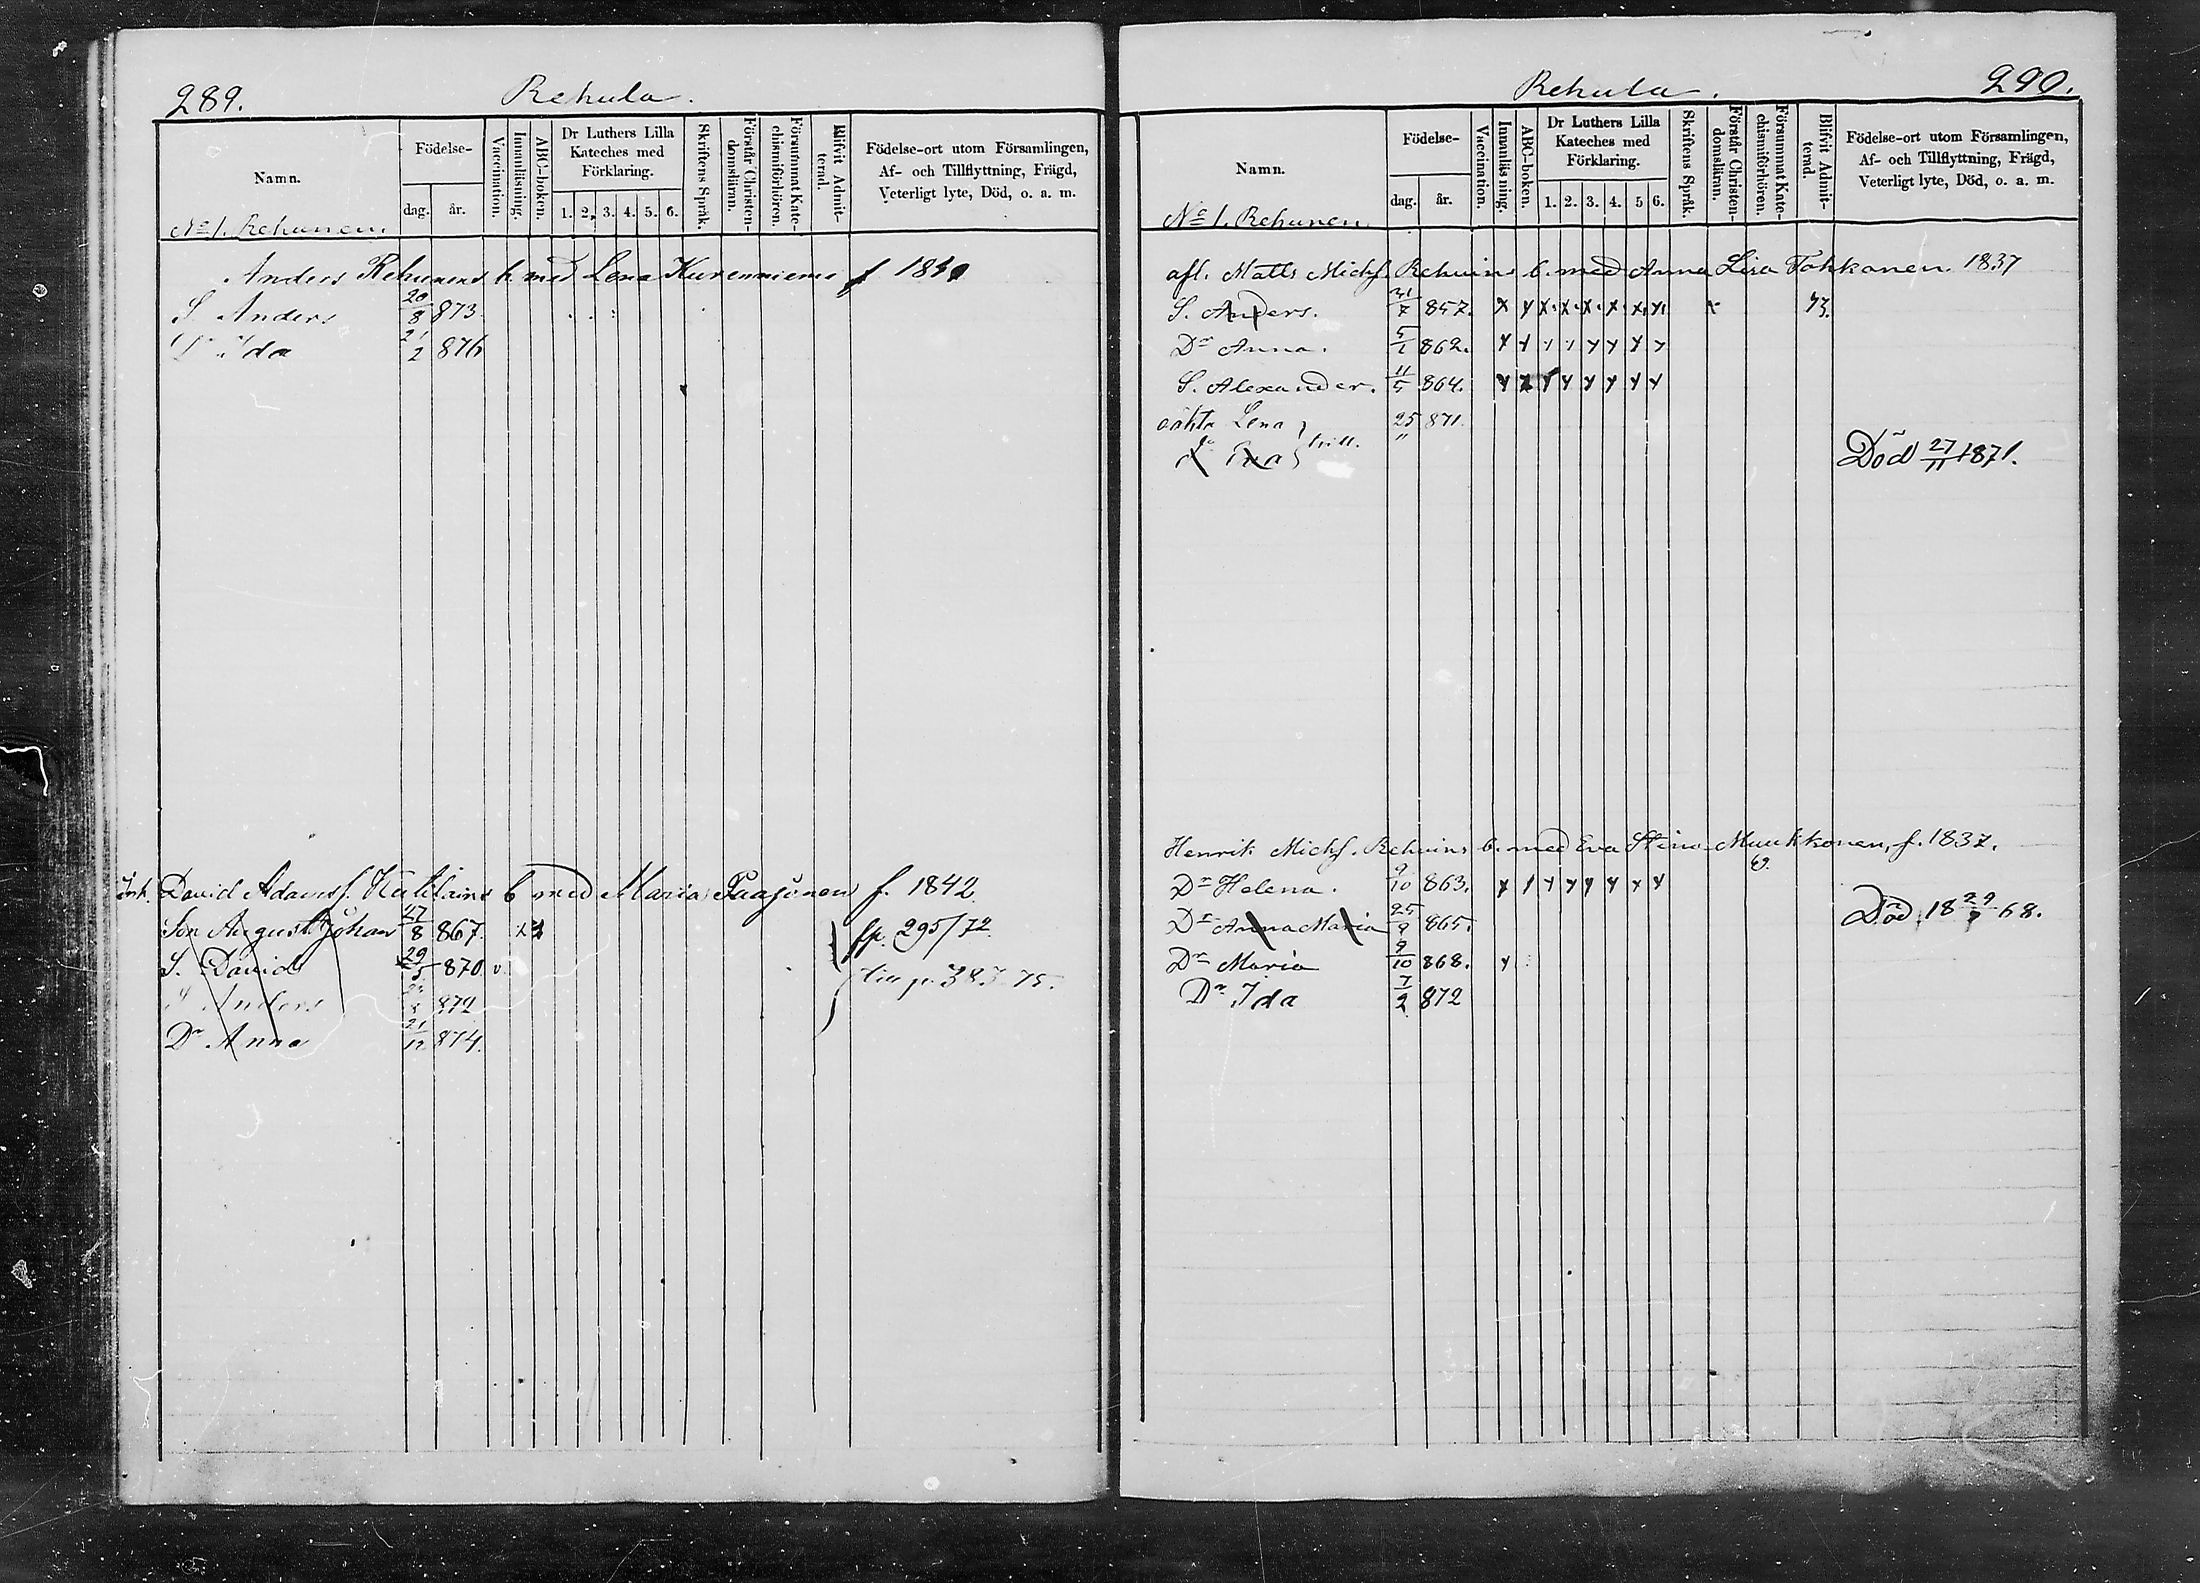 289.
Rehula.
Namn.
Födelse-
dag. år.
Vaccination.
Innanläsning.
ABC-boken.
Dr Luthers Lilla
Kateches med
Förklaring.
1. 2. 3. 4. 5. 6.
Skriftens Språk.
Förstår Christen-
domsläran.
Försummat Kate-
chismiförhören.
Blifvit Admit-
terad.
Födelse-ort utom Församlingen,
Af- och Tillflyttning, Frägd,
Veterligt lyte, Död, o. a. m.
No 1. Rehunen.
Anders Rehunens b. med Lena Kurenniemi f 1830
S. Anders 20/8 873.
Dr Ida 21/2 876
David Adamsf. b med Maria Paajonen f. 1842.
Son August Johan 27/8 867. x x
S. David 29/5 870. v.
fp. 295/72.
S Anders 872
383 75.
Dr Anna 21/12 874.
290.
Rehula.
Namn.
Födelse-
dag. år.
Vaccination.
Innanläs ning.
ABC-boken.
Dr Luthers Lilla
Kateches med
Förklaring.
1. 2. 3. 4. 5 6.
Skriftens Språk.
Förstår Christen-
domsläran.
Försummat Kate-
chismiförhören.
Blifvit Admit-
terad.
Födelse-ort utom Församlingen,
Af- och Tillflyttning, Frägd,
Veterligt lyte, Död, o. a. m.
No 1. Rehunen.
afl. Matts Michf. Rehuins b. med Anna Lisa Tohkanen. 1837
S. Anders. 31/7 857. x x x x x x x x x 73.
Dr Anna. 5/1 862. x x x x x x x x
S. Alexander. 11/5 864. x x x x x x x x
oäkta Lena 25/11 871.
do Eva } trill.
Död 27/11 1871.
Henrik Michf. Rehuins b. med Eva Stina Muukkonen, f. 1837.
Dr Helena. 9/10 863. x x x x x x x x
Dr Anna Maria 25/9 865.
Död 18 29/9 68.
Dr Maria 9/10 868. x
Dr Ida 7/2 872